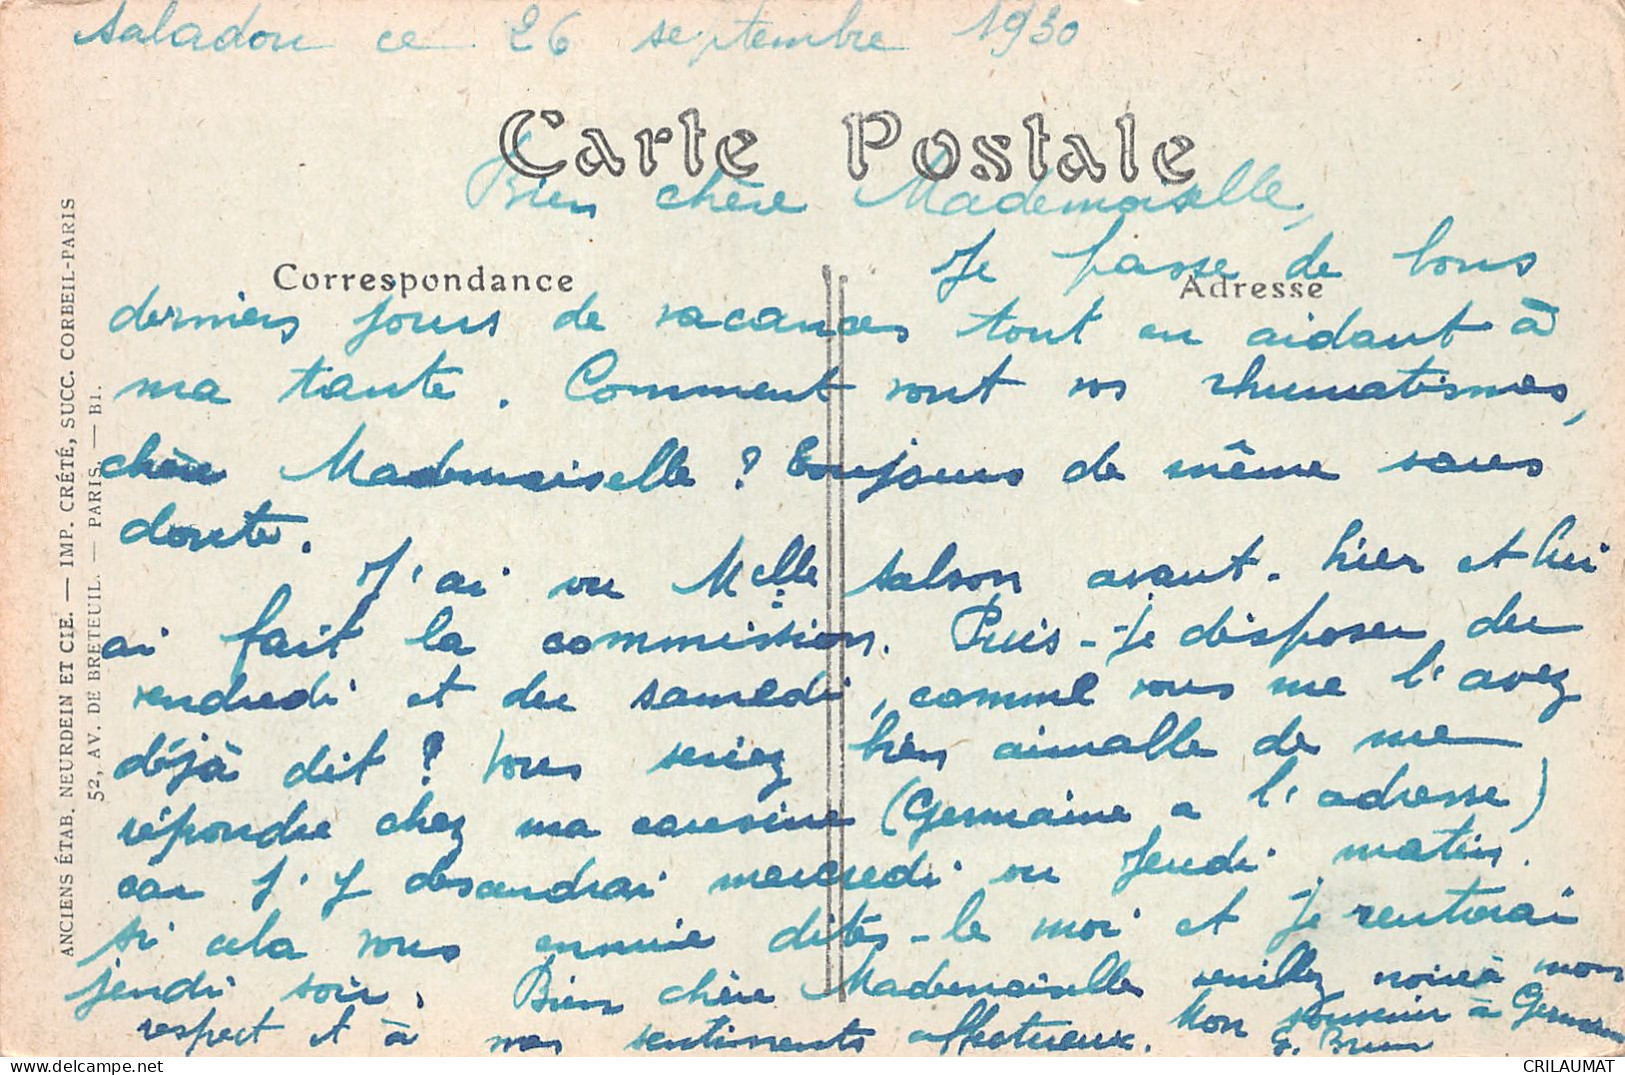 Saladou ce 26 septembre 1930
Carte Postale
Bien chère Mademoiselle,
Correspondance
Adresse
Je passe de bons
derniers jours de vacances tout en aidant à
ma tante. Comment vont vos rhumatismes,
chère Mademoiselle ? Toujours de même sans
doute.
J'ai vu Melle Salson avant-hier et lui
ai fait la commission. Puis-je disposer du
vendredi et du samedi, comme vous me l'avez
déjà dit ? Vous seriez bien aimable de me
répondre chez ma cousine (Germaine a l'adresse)
car j'y descendrai mercredi ou jeudi matin.
Si cela vous ennuie dites-le moi et je rentrerai
jeudi soir. Bien chère Mademoiselle veuillez mon
respect et à mes sentiments affectueux. Mon souvenir à Germaine
G. Brun
ANCIENS ÉTAB. NEURDEIN ET CIE. — IMP. CRÉTÉ, SUCC. CORBEIL-PARIS
52, AV. DE BRETEUIL. — PARIS. — B1.
CRILAUMAT